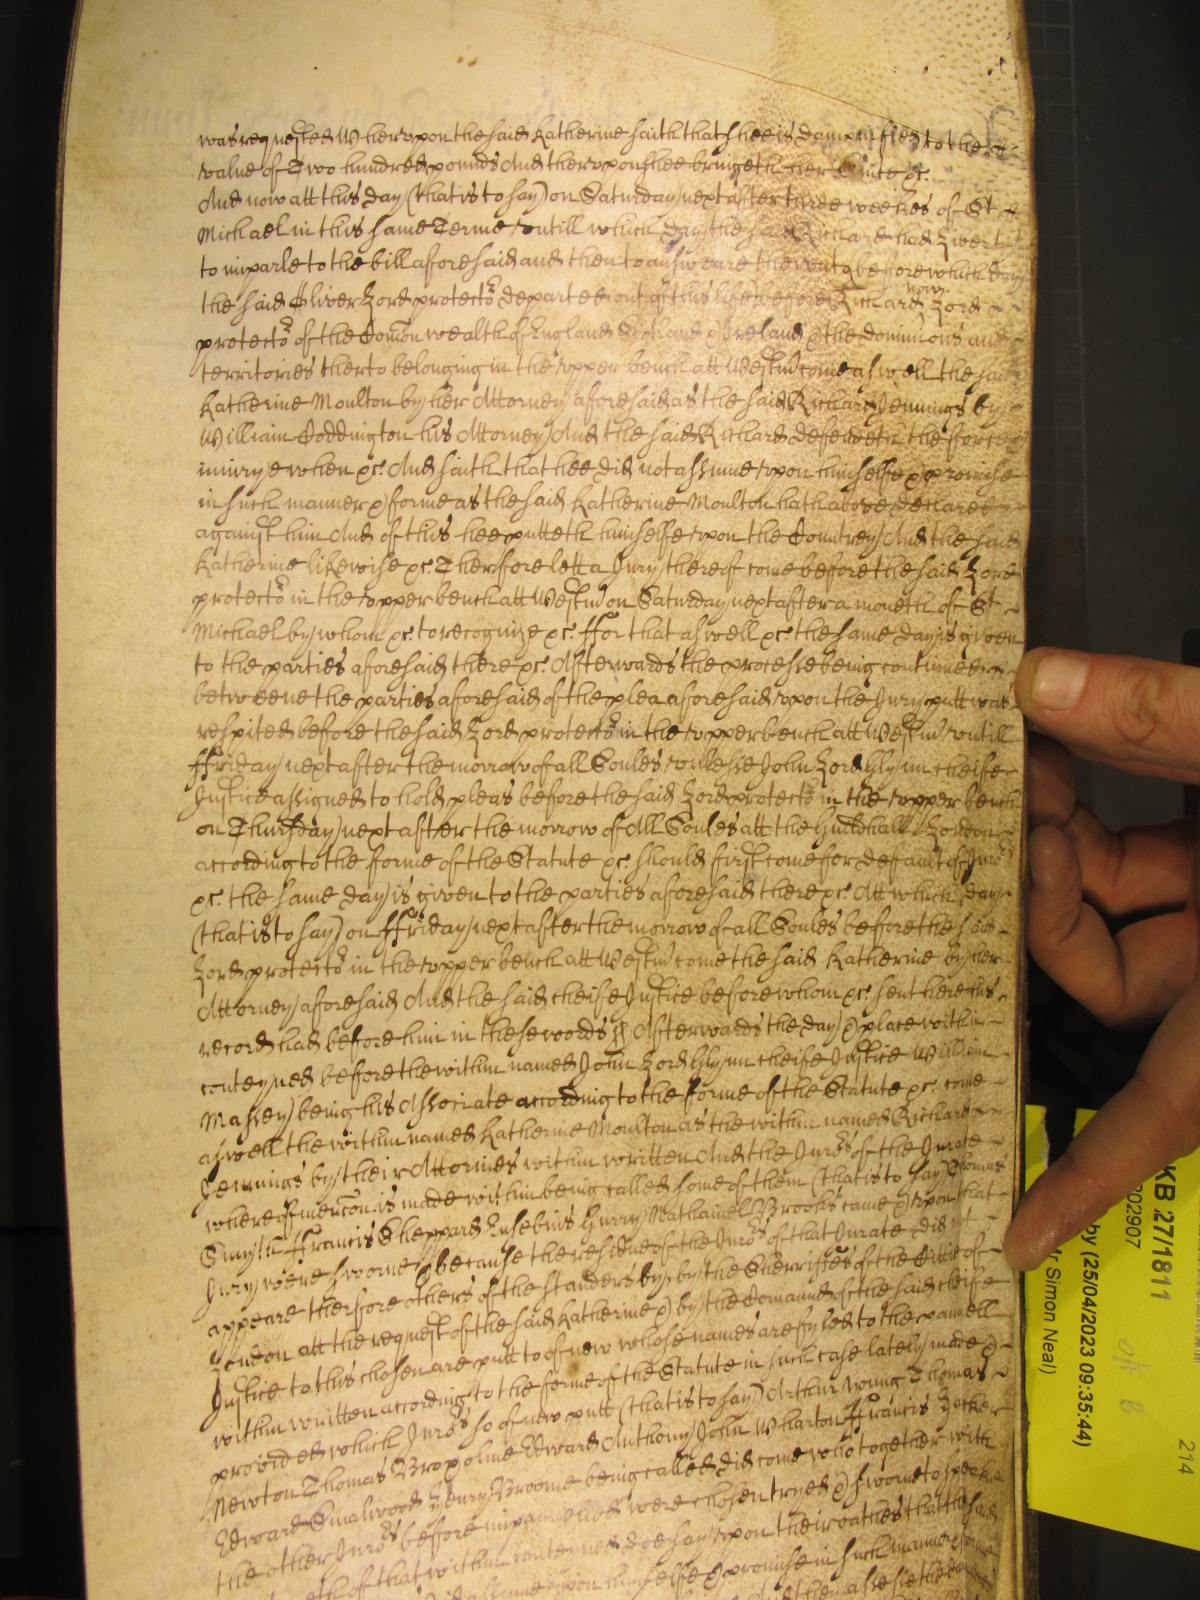 was requested Wherupon the said Katherine saith that shee is dampnified to the
value of Two hundred pounds And therupon shee bringeth her Suite &c.
And now att this day (that is to say) on Saturday next after three weekes of St
Michael in this same Terme untill which day the said Richard had liberty
to imparle to the bill aforesaid and then to answeare before which day
the said Oliver Lord protector departed out of this life before Richard now Lord
protector of the Comon wealth of England Scotland & Ireland & the dominions and
territories therto belonging in the upper bench att Westm come aswell the said
Katherine Moulton by her Attorney aforesaid as the said Richard Jennings by
William Coddington his Attorney And the said Richard defendeth the force &
iniury when &c. And saith that hee did not assume upon himselfe & promise
in such manner & forme as the said Katherine Moulton hath above declared
against him And of this hee putteth himselfe upon the Countrey And the said
Katherine likewise &c. Therfore lett a Jury therof come before the said Lord
protector in the upper bench att Westm on Saturday next after a moneth of St
Michael by whom &c. to recognize &c. ffor that aswell &c. the same day is given
to the parties aforesaid there &c. Afterwards the processe being continued
betweene the parties aforesaid of the plea aforesaid upon the Jury putt was
respited before the said Lord protector in the upper bench att Westm untill
ffriday next after the morrow of all Soules unlesse John Lord Glyn cheife
Justice assigned to hold pleas before the said Lord protector in the upper bench
on Thursday next after the morrow of All Soules att the Guildhall London
according to the forme of the Statute &c. should first come for default of Juro's
&c. the same day is given to the parties aforesaid there &c. Att which day
(that is to say) on ffriday next after the morrow of all Soules before the said
Lord protector in the upper bench att Westm come the said Katherine by her
Attorney aforesaid And the said cheife Justice before whom &c. sent here his
record had before him in these words ss Afterwards the day & place within
conteyned before the within named John Lord Glyn cheife Justice William
Massey being his Associate according to the forme of the Statute &c. come
aswell the within named Katherine Moulton as the within named Richard
Jennings by their Attornies within written And the Juro's of the Jurate
whereof mencon is made within being called some of them (that is to say) Thomas
ffrancis Sheppard Eusebius Nathaniel Brookes came & upon that
Jury were sworne & because the residue of the Juro's of that Jurate did not
appeare therfore others of the standers by by the Sherriffes of the Cittie of
London att the request of the said Katherine & by the Comaund of the said cheife
Justice to this chosen are putt to of new whose names are fyled to the pannell
within written according to the forme of the Statute in such case lately made &
provided which Juro's so of new putt (that is to say) Arthur Young Thomas
Newton Thomas Edward Anthony John Wharton ffrancis
Edward Smalwood Henry Broome being called did come who together with
the other Juro's before impannelled were chosen tryed & sworne to speake
of that within conteyned doe say upon their oathes that the said
upon himselfe & promise in such manner & forme
KB 27/1811
202907
by (25/04/2023 09:35:44)
Mr Simon Neal)
214